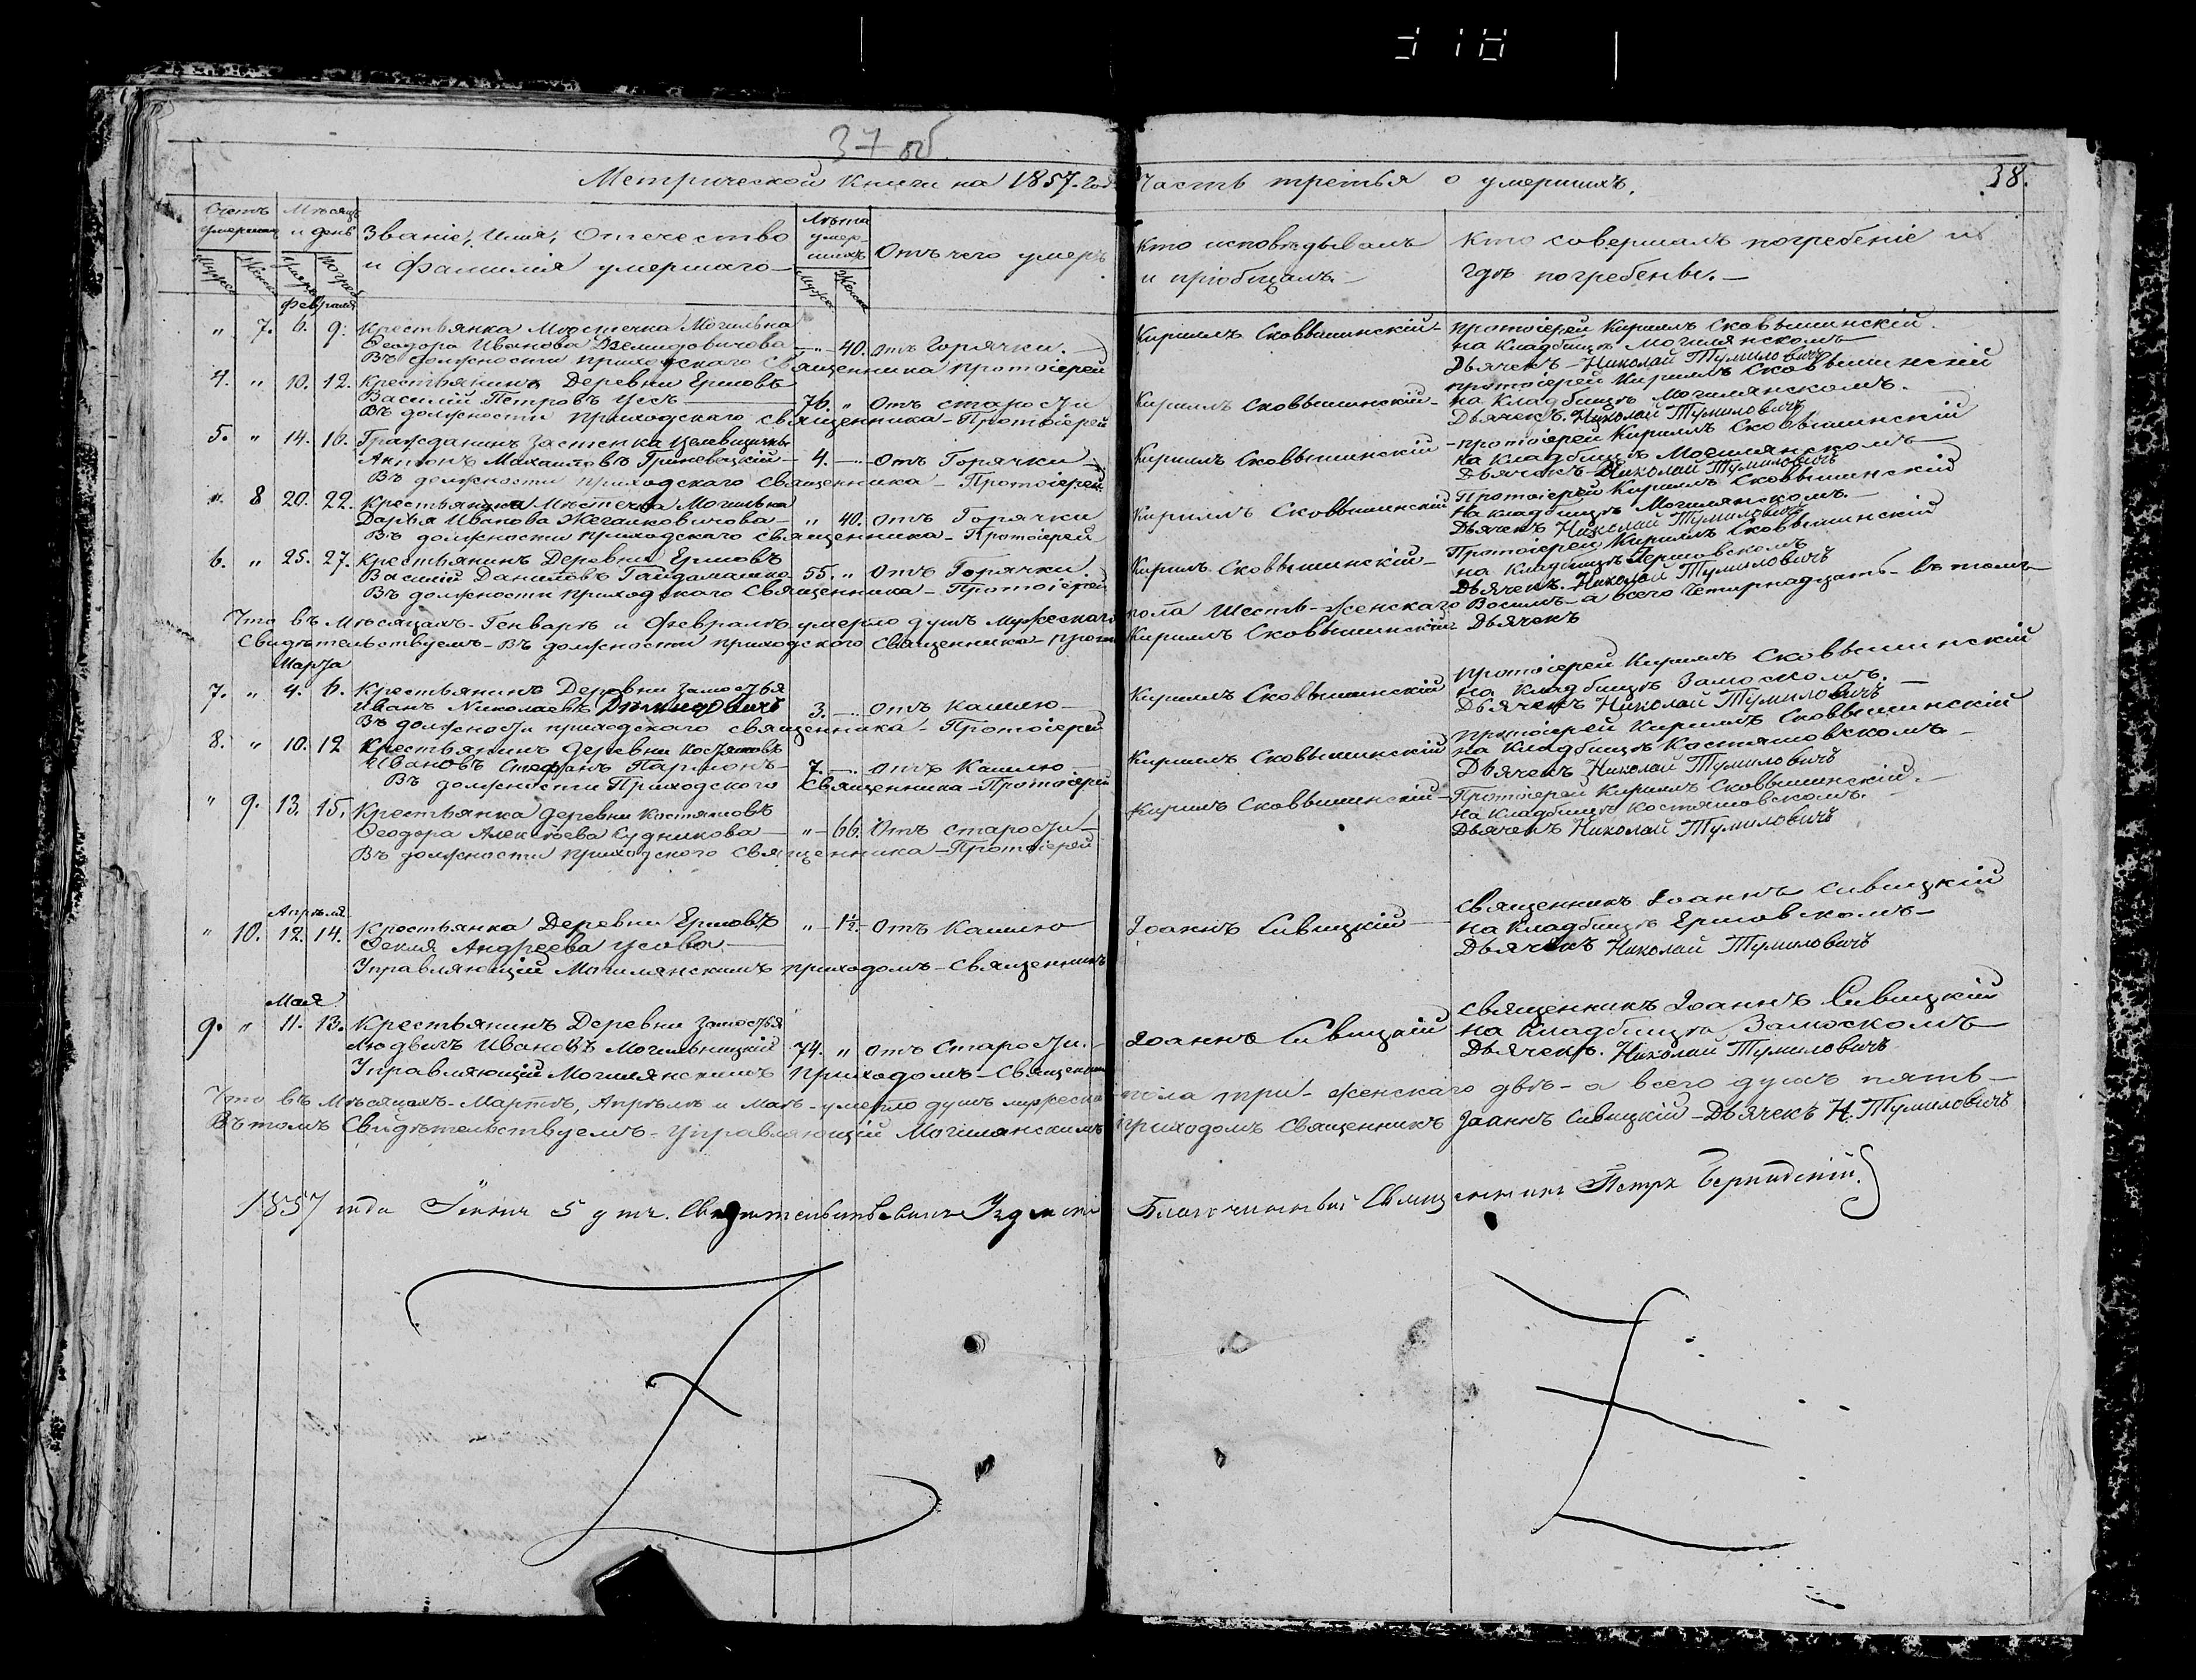 37 об.
Метрической книги на 1857. годъ Часть третья о умершихъ.
38.
Счетъ умершихъ
Мѣсяцъ и день
Званіе, Имя, Отечество
и фамилія умершаго
Лѣта умер-шихъ
Отъ чего умеръ
Кто исповѣдывалъ
и пріобщалъ.
Кто совершалъ погребеніе и
гдѣ погребены.
Мужеск
Женск
Февраля
" 7. 6. 9. Крестьянка Мѣстечка Могильна
Ѳеодора Иванова Демидовичова — " 40. Отъ Горячки.
Въ должности приходскаго священника протоіерей Кириллъ Сковышинскій
протоіерей Кириллъ Сковышинскій
на Кладбищѣ Могилянскомъ
Дьячекъ Николай Тумиловичъ
4. " 10. 12. Крестьянинъ Деревни Ершовъ
Василій Петровъ Усъ 76. " Отъ старости
Въ должности приходскаго священника Протоіерей Кириллъ Сковышинскій
протоіерей Кириллъ Сковышинскій
на Кладбищѣ Могилянскомъ.
Дьячекъ. Николай Тумиловичъ
5. " 14. 16. Гражданинъ застенка
Антонъ Михаиловъ Гриневицкій 4. — Отъ Горячки
Въ должности приходскаго священника — Протоіерей Кириллъ Сковышинскій
протоіерей Кириллъ Сковышинскій
на Кладбищѣ Могилянскомъ
Дьячекъ Николай Тумиловичъ
" 8 20. 22. Крестьянка Мѣстечка Могильна
Дарья Иванова Жегалковичова " 40. Отъ Горячки
Въ должности приходскаго священника — Протоіерей Кириллъ Сковышинскій
Протоіерей Кириллъ Сковышинскій
на Кладбищѣ Могилянскомъ.
Дьячекъ Николай Тумиловичъ
6. " 25. 27. Крестьянинъ Деревни Ершовъ
Василій Даниловъ Гайдамашко 55. " Отъ Горячки
Въ должности приходскаго Священника — Протоіерей Кириллъ Сковышинскій
Протоіерей Кириллъ Сковышинскій
на Кладбищѣ Ершовскомъ
Дьячекъ. Николай Тумиловичъ
Что въ Мѣсяцахъ Генварѣ и Февралѣ умерло душъ мужескаго пола Шесть — женскаго Восемь — а всего Четырнадцать — въ томъ
Свидѣтельствуемъ — Въ должности приходского Священника Кириллъ Сковышинскій Дьячекъ
Марта
7. " 4. 6. Крестьянинъ Деревни Замостья
Иванъ Николаевъ 3. — Отъ кашлю
Въ должности приходскаго священника — Протоіерей Кириллъ Сковышинскій
протоіерей Кириллъ Сковышинскій
на кладбищѣ Замоскомъ.
Дьячекъ Николай Тумиловичъ
8. " 10. 12 Крестьянинъ Деревни Костяшовъ
Ивановъ Стефанъ Пармонъ 7. — Отъ Кашлю
Въ должности Приходского Священника — Протоіерей Кириллъ Сковышинскій
протоіерей Кириллъ Сковышинскій
на Кладбищѣ Костяшовскомъ
Дьячекъ Николай Тумиловичъ
" 9. 13. 15. Крестьянка Деревни Костяшовъ
Ѳеодора Алексѣева Судникова " 66. Отъ старости
Въ должности приходского Священника — Протоіерей Кириллъ Сковышинскій
Протоіерей Кириллъ Сковышинскій.
на Кладбищѣ Костяшовскомъ.
Дьячекъ Николай Тумиловичъ
Апрѣля
" 10. 12. 14. Крестьянка Деревни Ершовъ
Ѳекля Андреева Усова " 1½. Отъ Кашлю
Управляющій Могилянскимъ приходомъ — Священникъ Іоаннъ Сивицкій
Священникъ Іоаннъ Сивицкій
на Кладбищѣ Ершовскомъ
Дьячекъ Николай Тумиловичъ
Мая
9. " 11. 13. Крестьянинъ Деревни Замостья
Людвикъ Ивановъ Могильницкій 74. " Отъ Старости.
Управляющій Могилянскимъ Приходомъ — Священникъ Іоаннъ Сивицкій
священникъ Іоаннъ Сивицкій
на Кладбищѣ Замоскомъ
Дьячекъ. Николай Тумиловичъ
Что въ Мѣсяцахъ — Мартѣ, Апрѣлѣ и Маѣ — умерло душъ мужеска пола три — женскаго двѣ — а всего душъ пять —
Въ томъ Свидѣтельствуемъ — Управляющій Могилянскимъ приходомъ Священникъ Іоаннъ Сивицкій — Дьячекъ Н. Тумиловичъ
1857 года Іюня 5 дня. Свидѣтельствовалъ Благочинный Священникъ Петръ